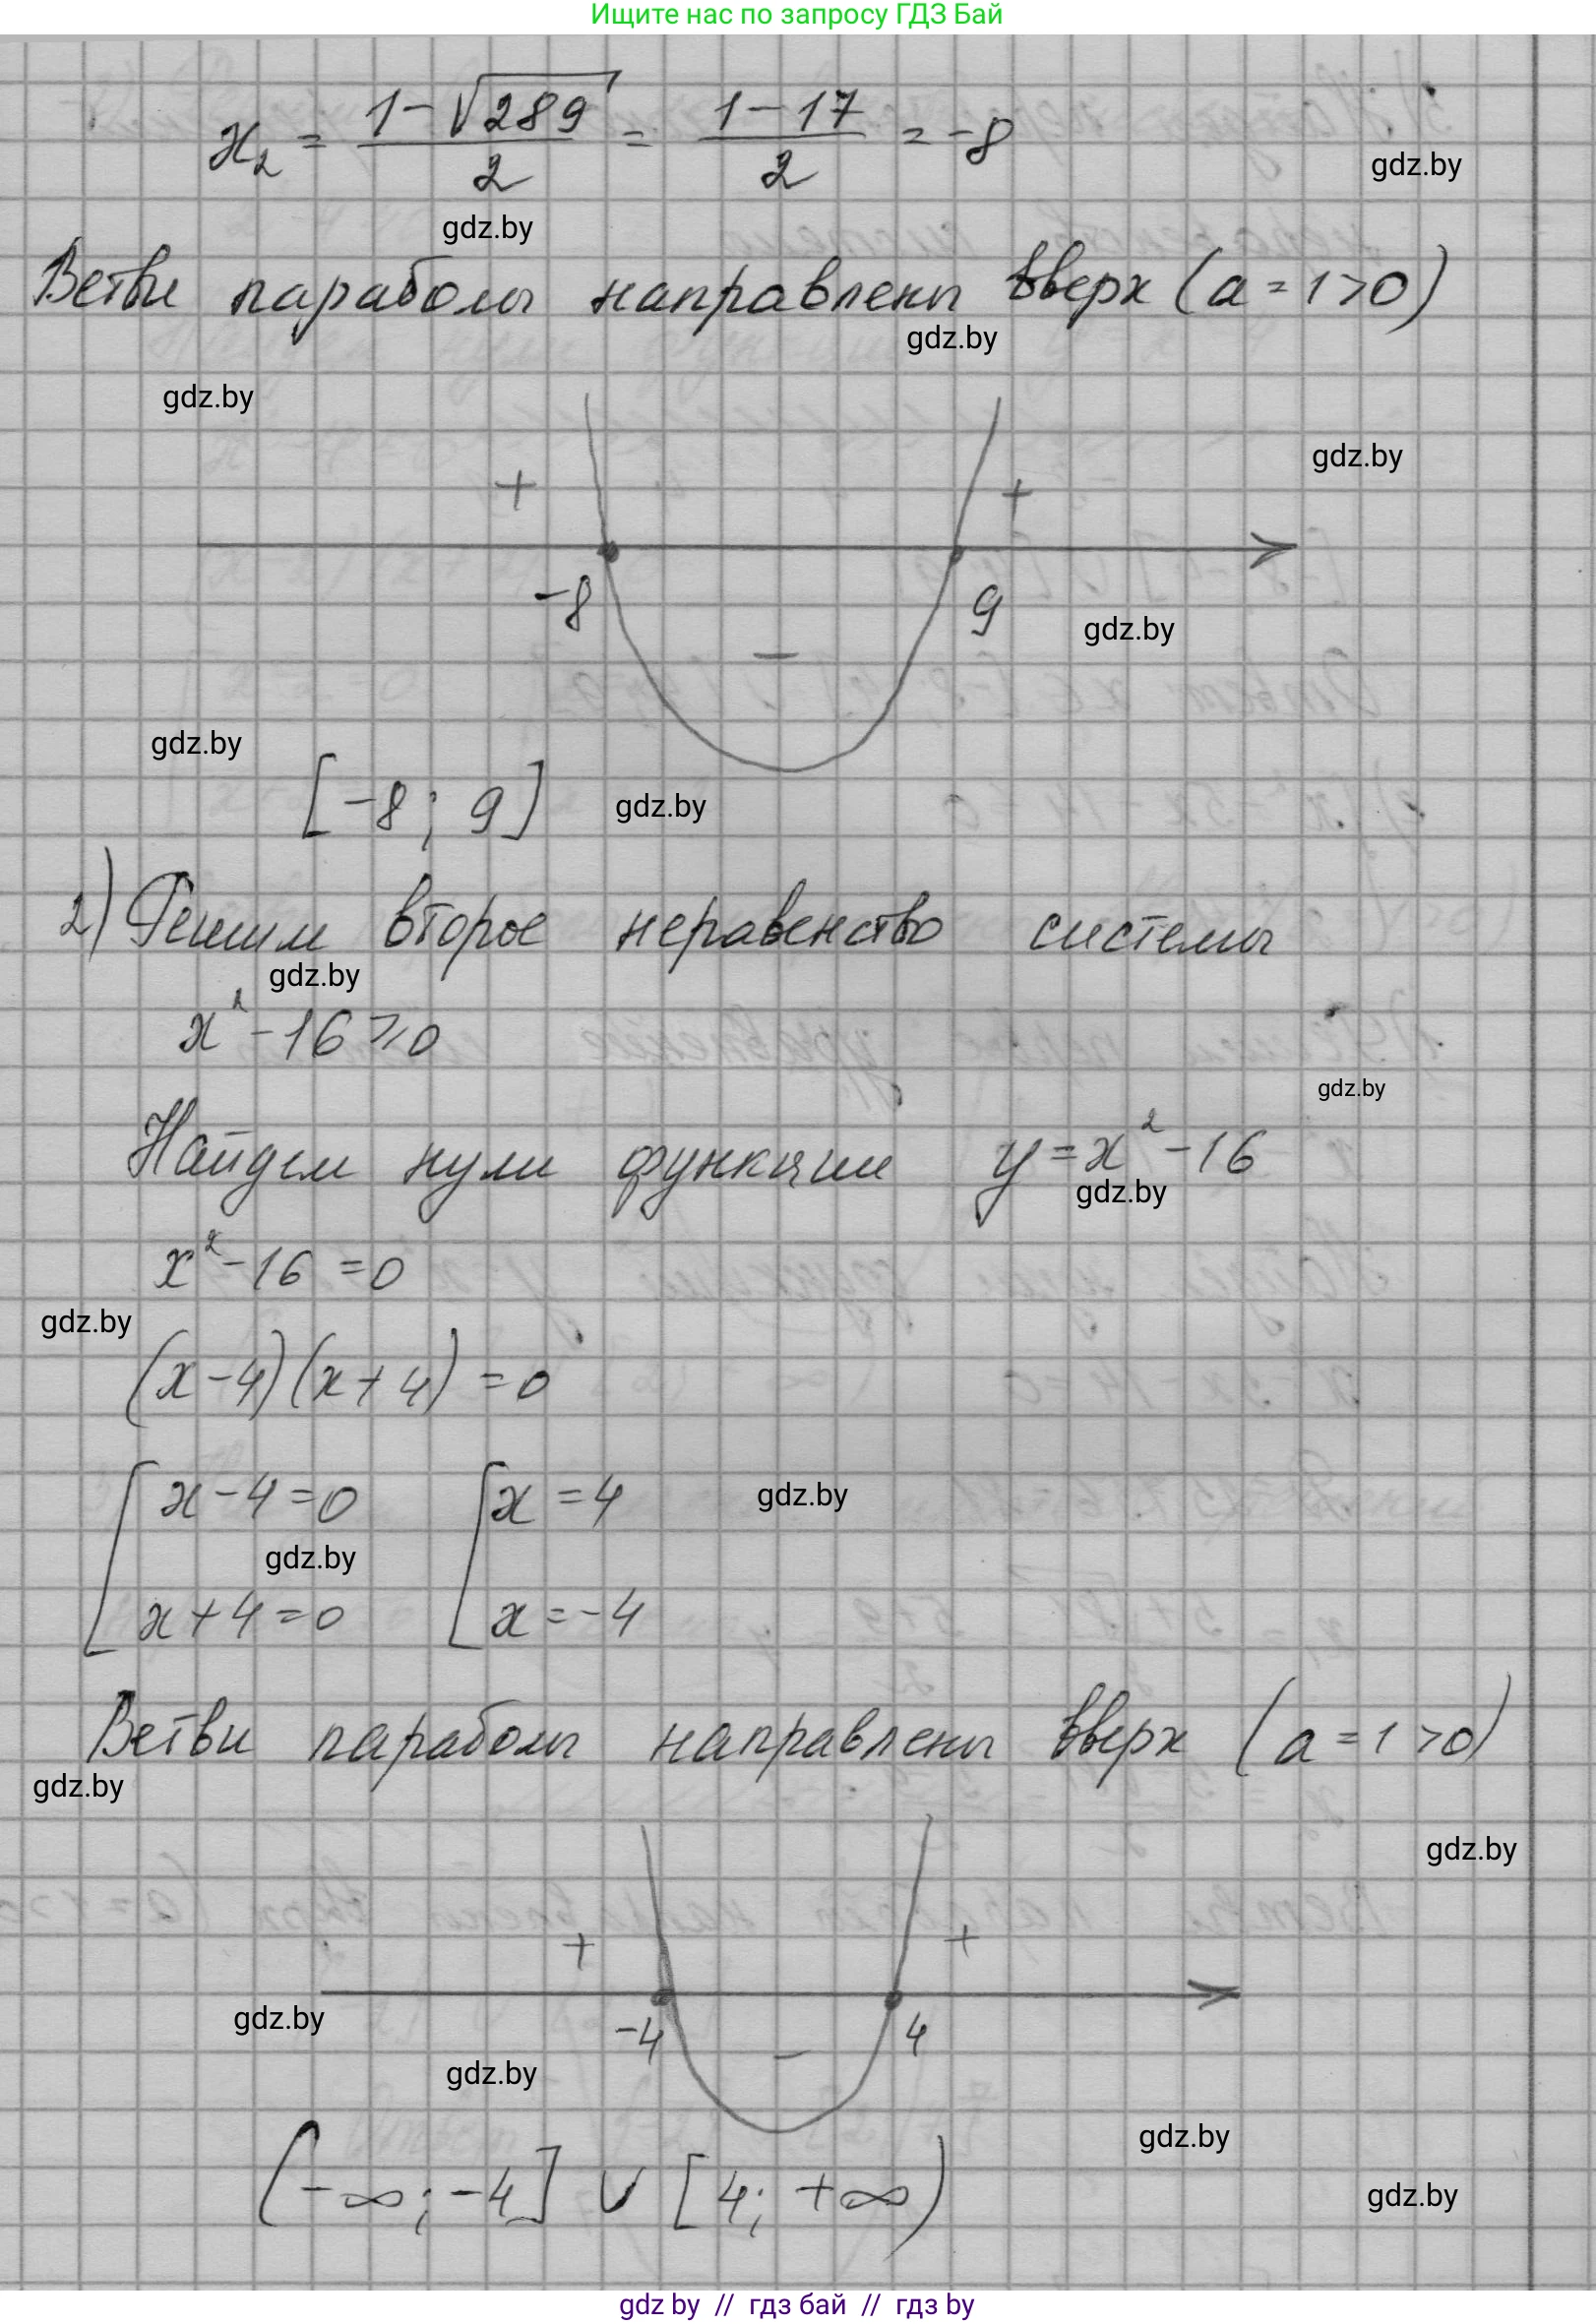 Ищите нас по запросу ГДЗ Бай
x₂ = (1-√289)/2 = (1-17)/2 = -8
gdz.by
gdz.by
Ветви параболы направлены вверх (a=1>0)
gdz.by
gdz.by
gdz.by
+ +
-8 9
gdz.by
-
gdz.by
[-8; 9]
gdz.by
2) Решим второе неравенство системы
gdz.by
x²-16⩾0
gdz.by
Найдем нули функции y=x²-16
gdz.by
x²-16=0
gdz.by
(x-4)(x+4)=0
[x-4=0 [x=4
gdz.by
gdz.by
x+4=0 x=-4
Ветви параболы направлены вверх (a=1>0)
gdz.by
gdz.by
+ +
gdz.by
-4 4
-
gdz.by
gdz.by
(-∞;-4] ∪ [4;+∞)
gdz.by
gdz by // гдз бай // гдз by